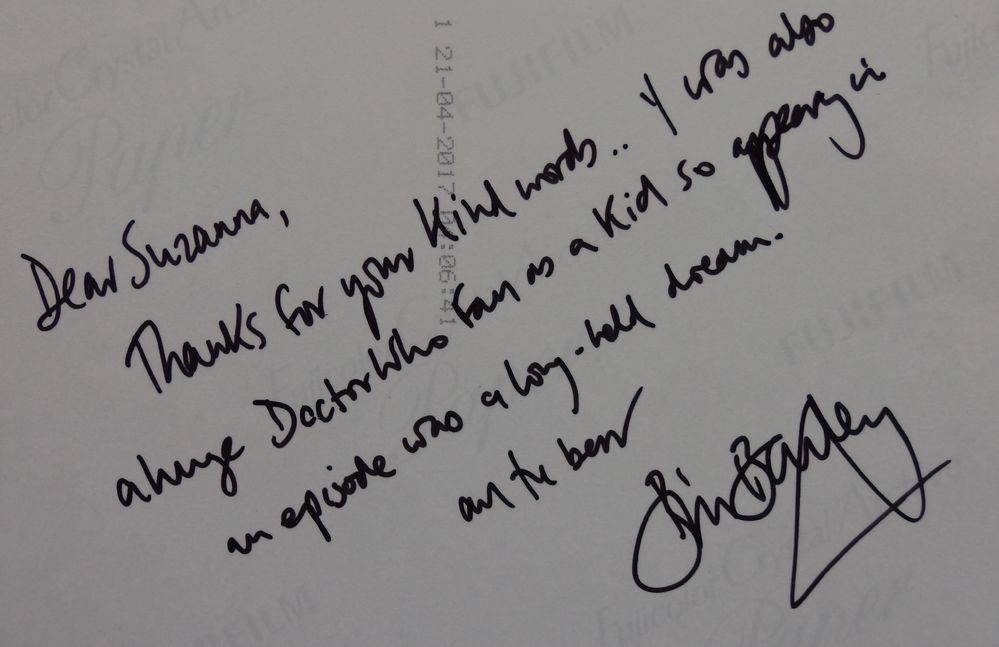 Dear Suzanna,
Thanks for your kind words.. I was also
a huge Doctor Who fan as a kid so appearing in
an episode was a long-held dream.
all the best
Bill Bailey
1 21-04-2017 :06:41
Fujicolor Crystal Archive
Paper
FUJIFILM
FUJIFILM
FUJIFILM
Fujicolor Crystal Archive
Paper